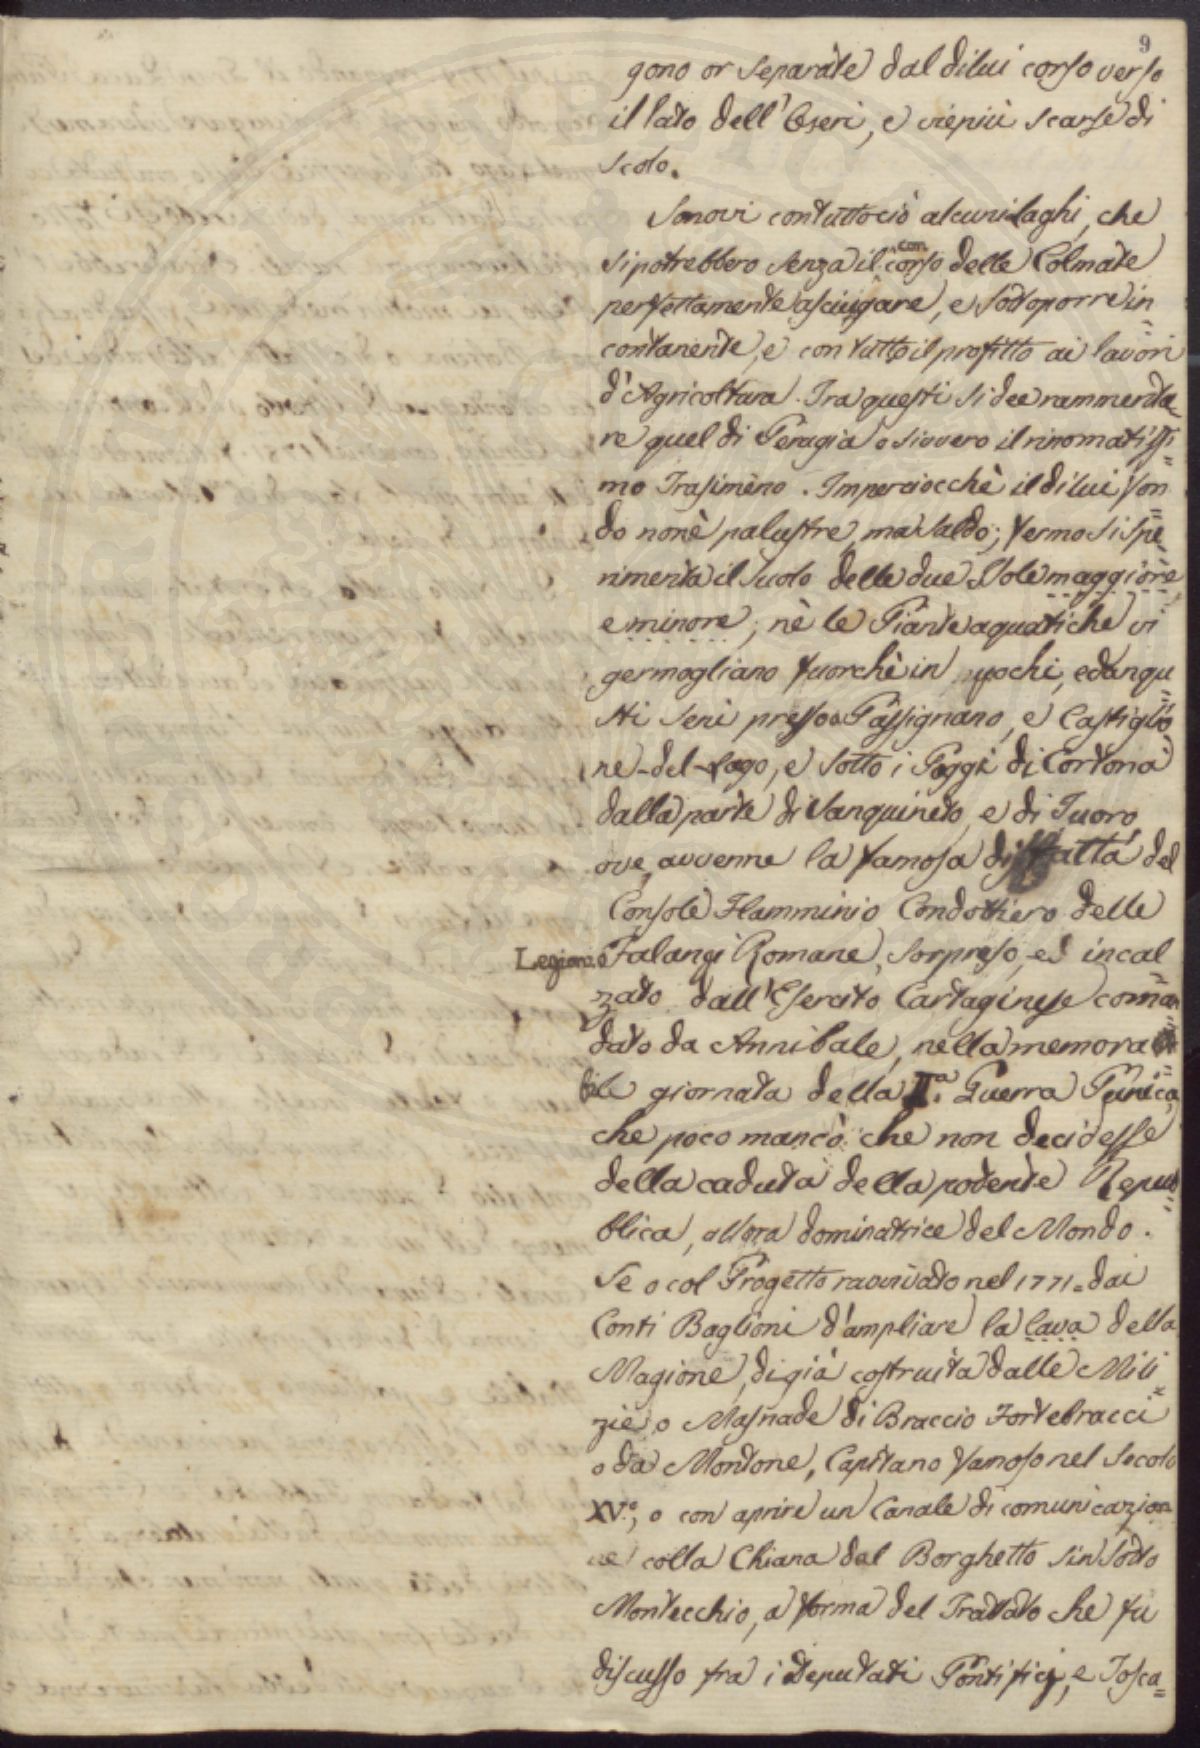 9
gono or separate dal dilui corso verso
il lato dell' Eseri, e viepiù scarse di
scolo.
Sonovi contuttociò alcuni laghi, che
si potrebbero senza il con
corso delle Colmate
perfettamente asciugare, e sottoporre in=
contanente, e con tutto il profitto ai lavori
d'Agricoltura. Tra questi si dee rammenta=
re quel di Perugia o sivvero il rinomatissi=
mo Trasimeno. Imperciocchè il dilui fon=
do non è palustre, ma saldo; fermo si spe=
rimenta il suolo delle due Isole maggiore,
e minore; nè le Piante aquatiche vi
germogliano fuorchè in pochi, ed angu=
sti seni presso a Passignano, e Castiglio=
ne-del-Lago, e sotto i Poggi di Cortona
dalla parte di Sanquineto, e di Tuoro,
ove avvenne la famosa disfatta del
Console Flamminio Condottiero delle
Legioni o Falangi Romane, sorpreso, ed incal=
zato dall'Esercito Cartaginese coman=
dato da Annibale, nella memora=
bile giornata della II.a Guerra Punica,
che poco mancò che non decidesse
della caduta della potente Repub=
blica, allora dominatrice del Mondo.
Se o col Progetto ravvivato nel 1771. dai
Conti Baglioni d'ampliare la Cava della
Magione, di già costruita dalle Mili=
zie, o Masnade di Braccio Fortebracci
o da Montone, Capitano famoso nel Secolo
XV.o, o con aprire un Canale di comunicazion
ne colla Chiana dal Borghetto sin sotto
Montecchio, a forma del Trattato che fu
discusso fra i Deputati Pontificj, e Tosca=